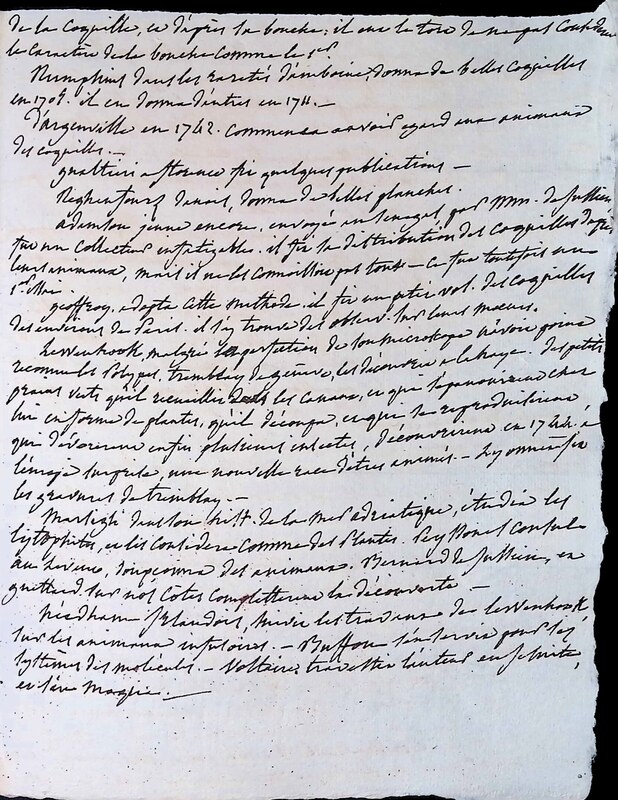 de la Coquille, et d'après la bouche; il eut le tort de ne pas Considerer
le Caractère de la bouche Comme le 1er.
Rumphius dans les raretés d'amboine, donna de belles Coquilles
en 1705. il en donna d'autres en 1711. —
D'argenville en 1742. Commença avoir égard aux animaux
des coquilles. —
gualtieri a florence fit quelques publications —
Reghenfous danois, donna de belles planches.
adanson jeune encore, envoyé au Senegal, par Mrs. de Jussieu
fut un Collecteur infatigable. il fit la distribution des Coquilles d'après
leurs animaux, mais il ne les Connaissoit pas tous — Ce fut toutefois un
1er
geoffroy, adopta Cette methode. il fit un petit vol. des Coquilles
des environs de Paris. il s'y trouve des observ. sur leurs moeurs.
Lewenhook, malgré la perfection de son microscope n'avoit point
reconnu les Polypes. trembley de genève, les découvrit a la haye. des petits
grains verts qu'il recueillit dans les Canaux, et que s'épanouirent chez
lui en forme de plantes, qu'il découpa, et que se reproduisirent
qui dévorerent enfin plusieurs insectes, découvrirent en 1744. à
l'émage surprise, une nouvelle race d'êtres animés —
les gravures de trembley. —
Marsigli dans son hist. de la Mer adriatique, étudia les
lytophites, et les Considera Comme des Plantes. Peyssonel Consul
au levant, soupçonna des animaux. Bernard de Jussieu, et
guettard, sur nos Cotes Completterent la découverte —
Needham Irlandois, suivit les travaux de Lewenhook
sur les animaux infusoires. — Buffon s'en servit pour ses
systèmes des molecules. — Voltaire, travestit l'auteur en jesuite,